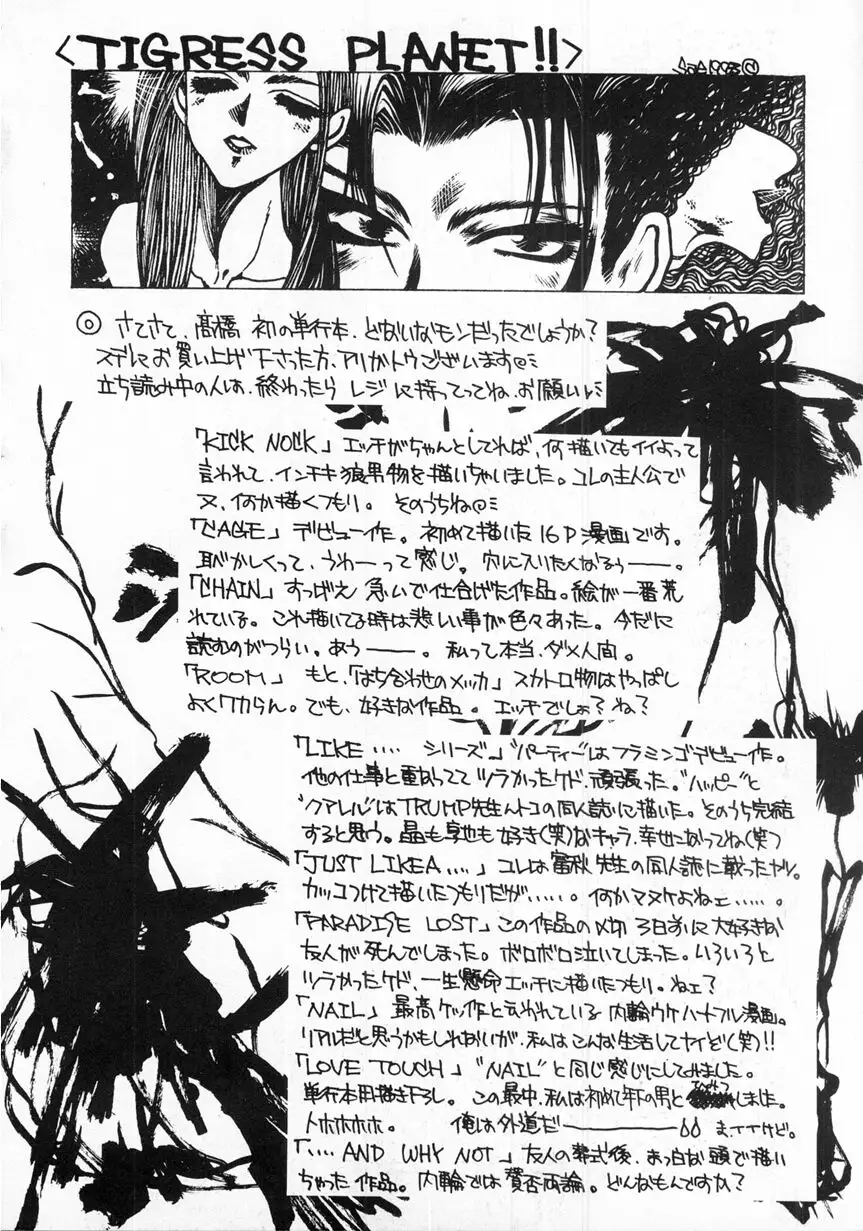 <TIGRESS PLANET!!>
◎ さてさて、高橋 初の単行本、どないなモンだったでしょうか?
スデにお買い上げ下さった方、アリガトウございます@ミ
立ち読み中の人は、終わったら レジに持ってってね、お願いいミ
「KICK NOCK」エッチがちゃんとしてれば、何描いてもイイよって
言われて、インチキ狼男物を描いちゃいました。コレの主人公で
又、何か描くつもり。 そのうちね@ミ
「CAGE」デビュー作。 初めて描いた16P漫画です。
恥かしくって、うわーって感じ。穴に入りたくなるぅー。
「CHAIN」すっげえ 急いで仕上げた作品。絵が一番荒
れている。 これ描いてる時は悲しい事が色々あった。今だに
読むのがつらい。あうー。 私って本当、ダメ人間。
「ROOM」 もと、「はち合わせのメッカ」スカトロ物はやっぱし
よくワカらん。でも、好きな作品。 エッチでしょ?ね?
「LIKE .... シリーズ」"パーティー"はフラミンゴデビュー作。
他の仕事と重ねっててツラかったケド、頑張った。"ハッピー"と
"クアレル"はTRUMP先生んトコの同人誌に描いた。そのうち完結
すると思う。晶も享也も好き(笑)なキャラ、幸せになってね(笑)
「JUST LIKE A ....」コレは 先生の同人誌に載ったヤツ。
カッコつけて描いたつもりだが......。何かマヌケよねェ......。
「PARADISE LOST」この作品の〆切 3日前に大好きな
友人が死んでしまった。ボロボロ泣いてしまった。いろいろと
ツラかったケド、一生懸命エッチに描いたつもり。ねェ?
「NAIL」最高ケッ作と云われている内輪ウケハートフル漫画。
リアルだと思うかもしれないが、私はこんな生活してナイどく(笑)!!
「LOVE TOUCH」"NAIL"と同じ感じにしてみました。
単行本用描き下ろし。 この最中、私は初めて年下の男と しました。
トホホホホ。 俺は外道だー ま、イイけど。
「.... AND WHY NOT」友人の葬式後、まっ白な頭で描い
ちゃった作品。内輪では賛否両論。どんなもんですか?